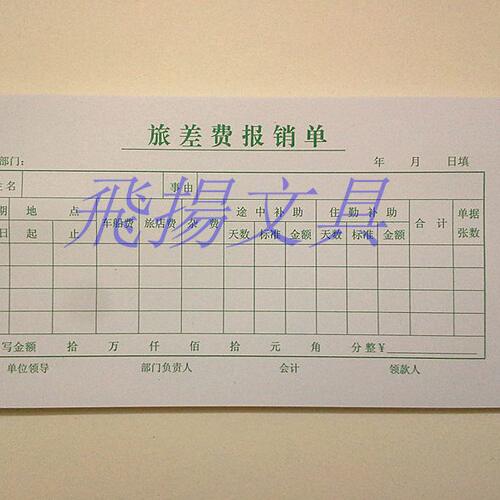 旅差费报销单
部门： 年 月 日填
名 事由
飛揚文具
期 地 点 车船费 旅店费 杂费 途中补助 住勤补助 合计 单据张数
日 起 止 天数 标准 金额 天数 标准 金额
写金额 拾 万 仟 佰 拾 元 角 分整￥
单位领导 部门负责人 会计 领款人